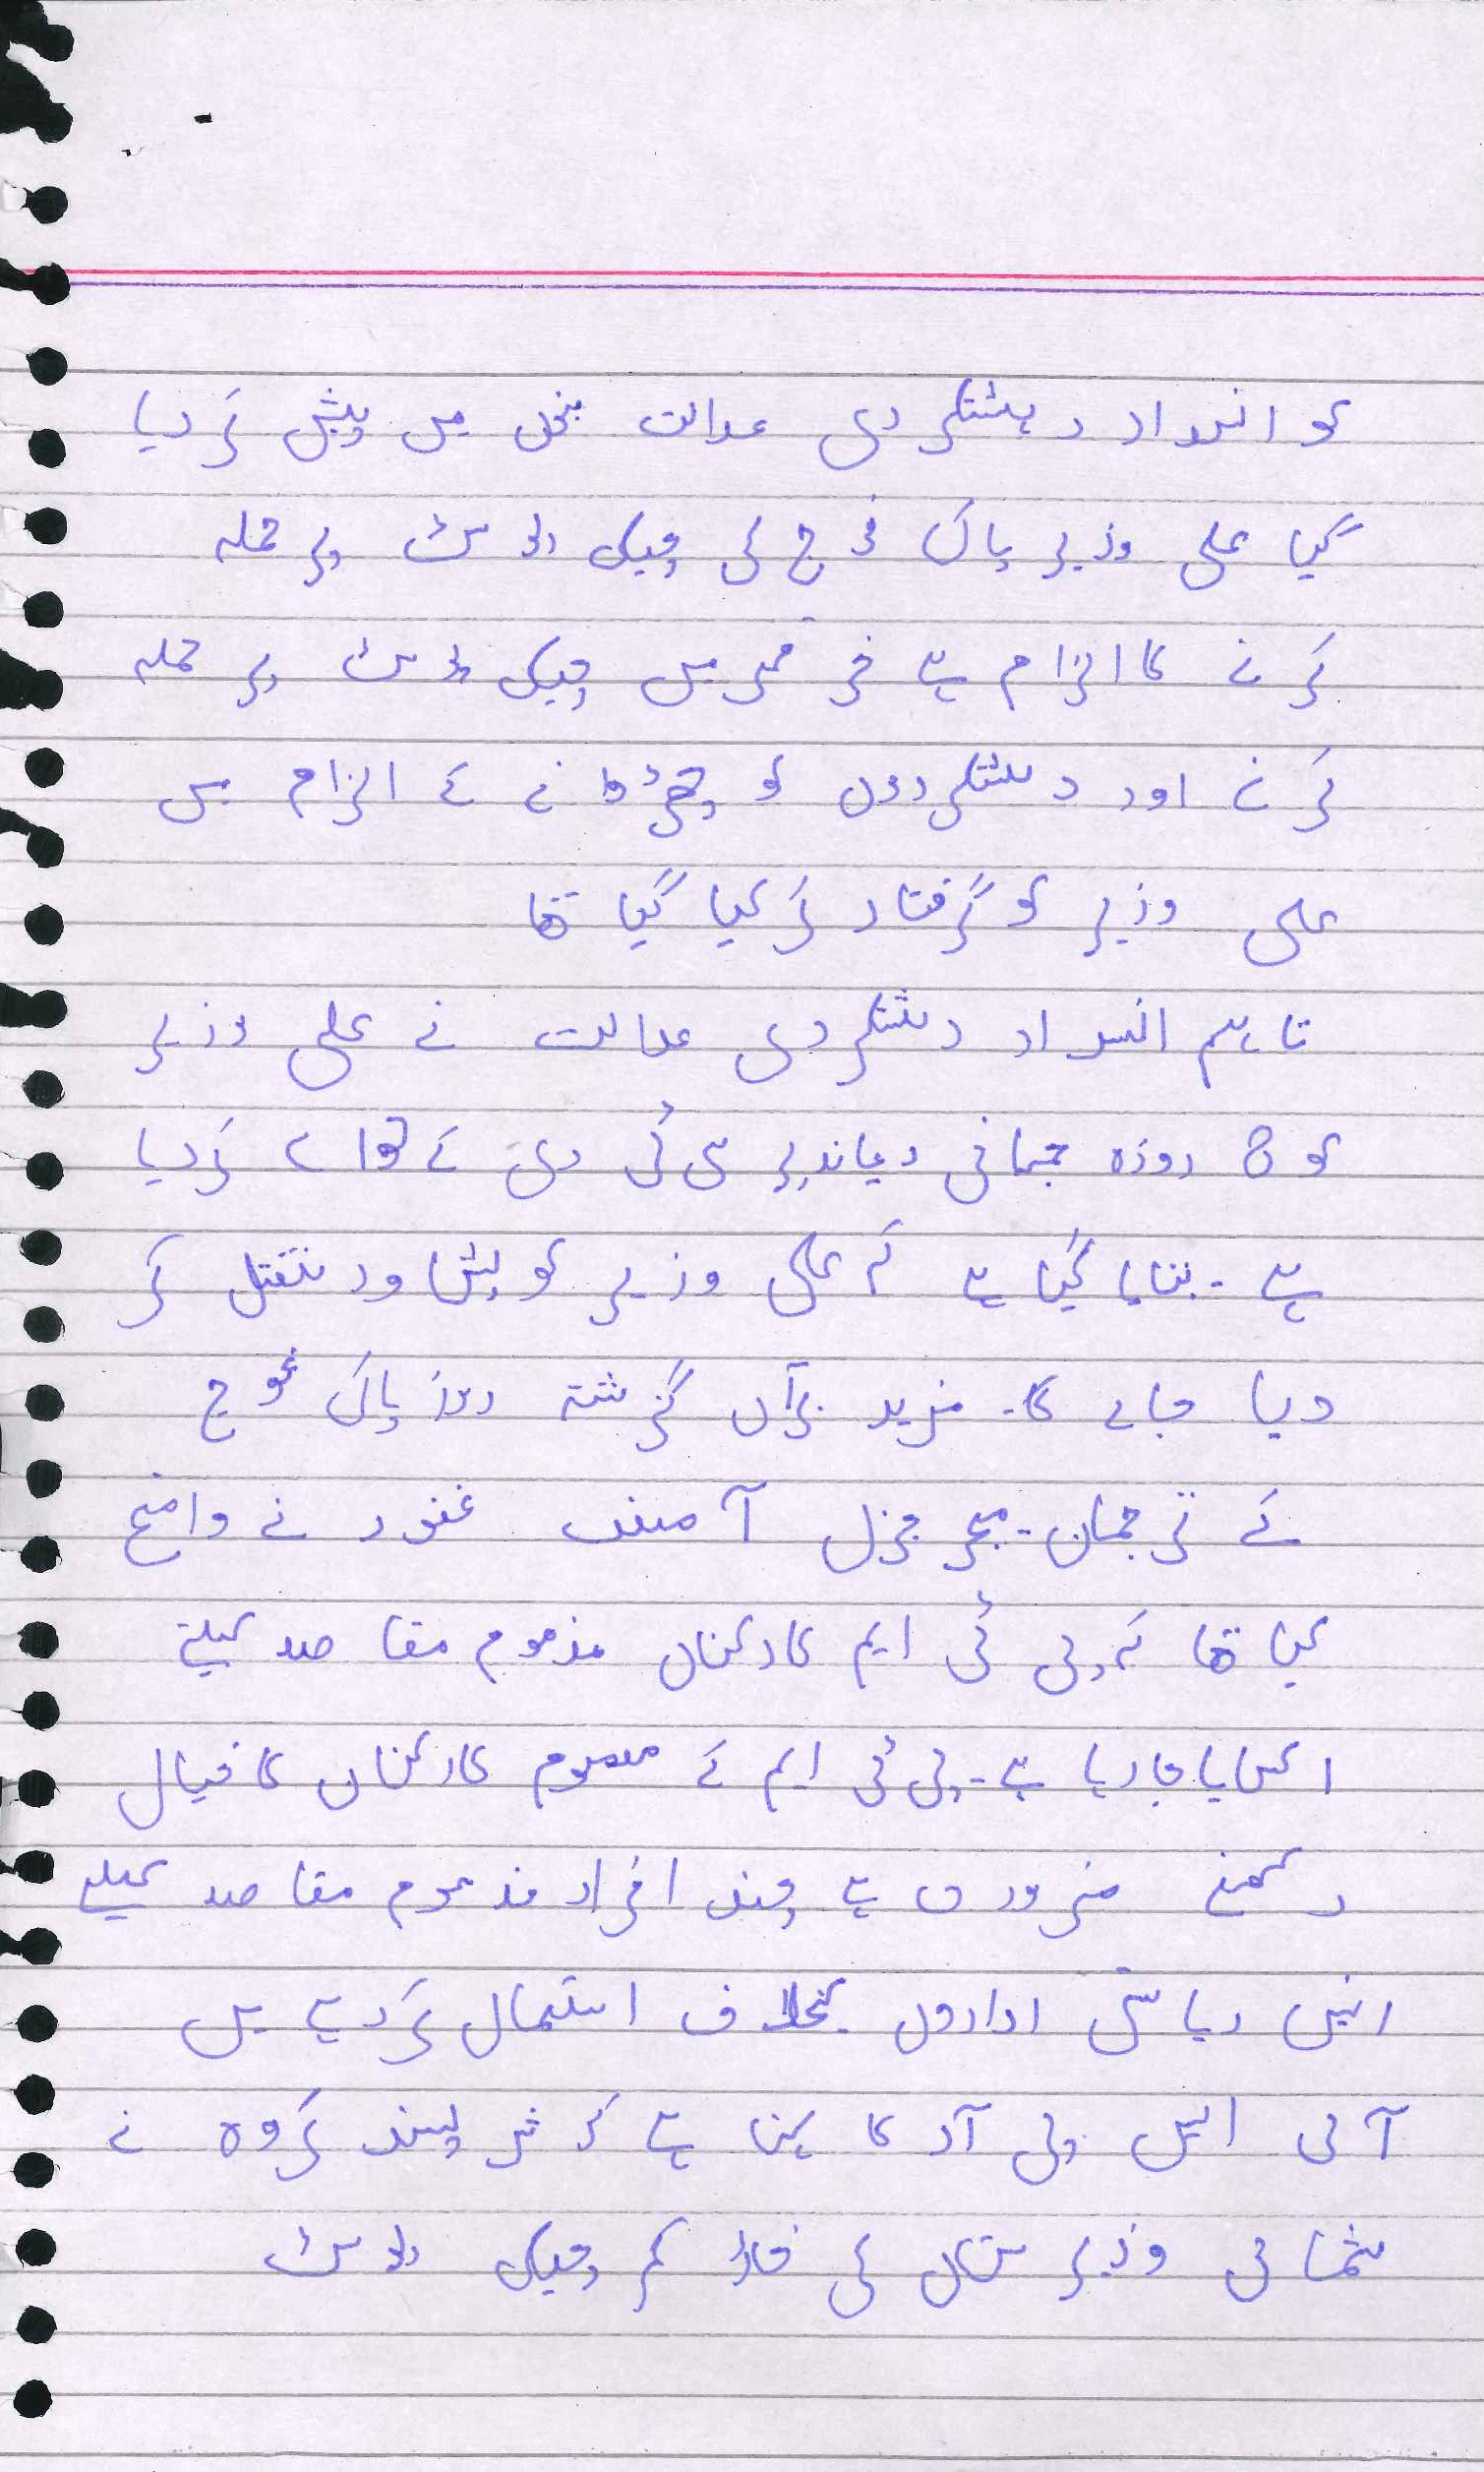 کو انسداد دہشتگردی عدالت بنوں میں پیش کر دیا
گیا علی وزیر پاک فوج کی چیک پوسٹ پر حملہ
کرنے کا الزام ہے خر قمر میں چیک پوسٹ پر حملہ
کرنے اور دہشتگردوں کو چھڑانے کے الزام میں
علی وزیر کو گرفتار کر لیا گیا تھا
تاہم انسداد دہشتگردی عدالت نے علی وزیر
کو 8 روزہ جسمانی ریمانڈ پر سی ٹی ڈی کے حوالے کر دیا
ہے - بتایا گیا ہے کہ علی وزیر کو پشاور منتقل کر
دیا جائے گا - مزید برآں گزشتہ روز پاک فوج
کے ترجمان - میجر جنرل آصف غفور نے واضح
کیا تھا کہ پی ٹی ایم کارکنان مذموم مقاصد کیلئے
اکسایا جا رہا ہے - پی ٹی ایم کے معصوم کارکنان کا خیال
رکھنے ضروری ہے چند افراد مذموم مقاصد کیلئے
انہیں ریاستی اداروں کیخلاف استعمال کر رہے ہیں
آئی ایس پی آر کا کہنا ہے کہ شر پسند گروہ نے
شمالی وزیرستان کی خاڑ کمر چیک پوسٹ